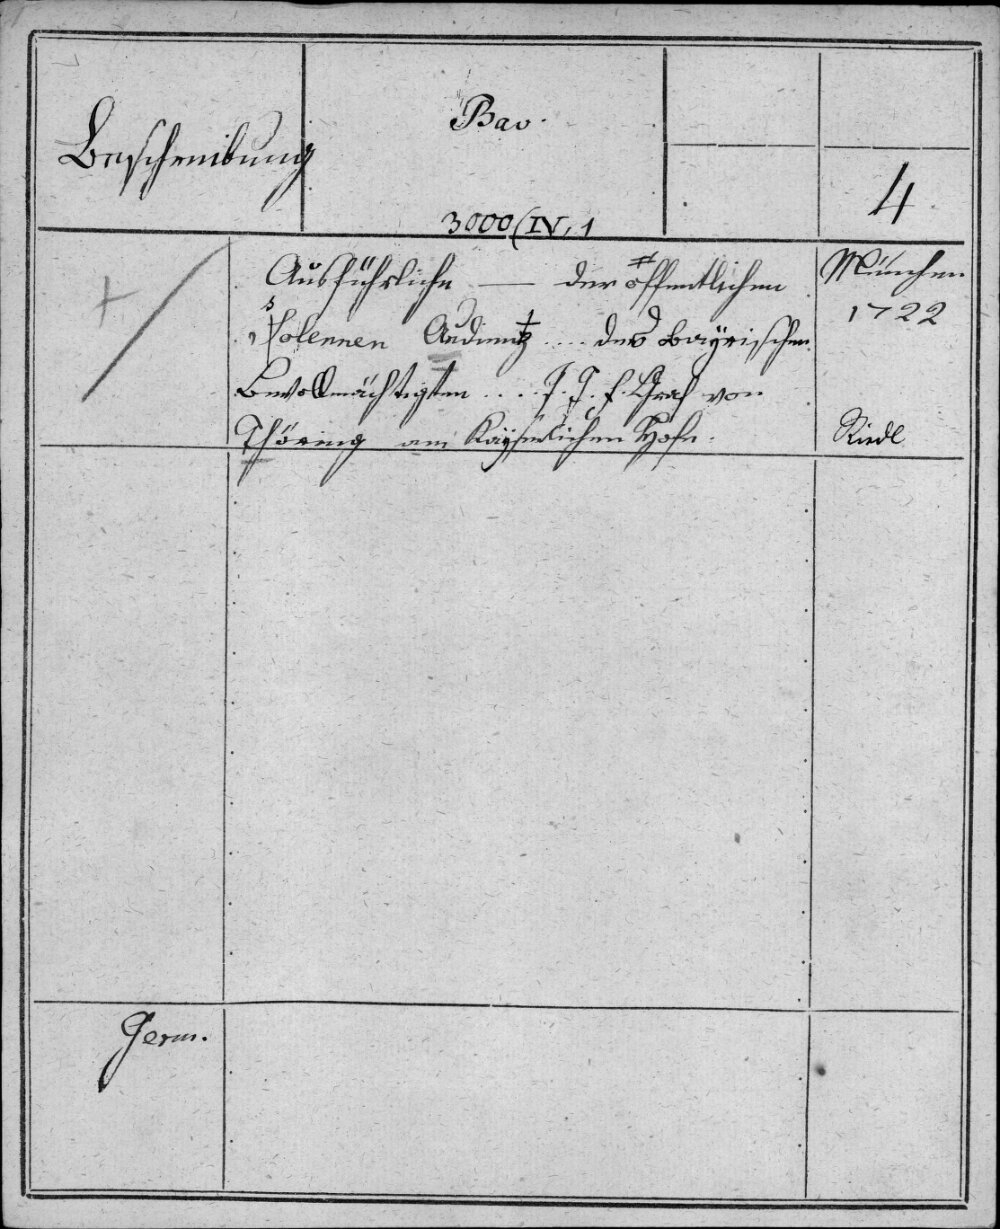 Beschreibung
Bav.
3000(IV,1
4
Ausführliche — der öffentlichen
solennen Audientz .... des bayrischen
Bevollmächtigten .... Graf von
Thöring am Kayserlichen Hofe.
München
1722
Riedl
Germ.